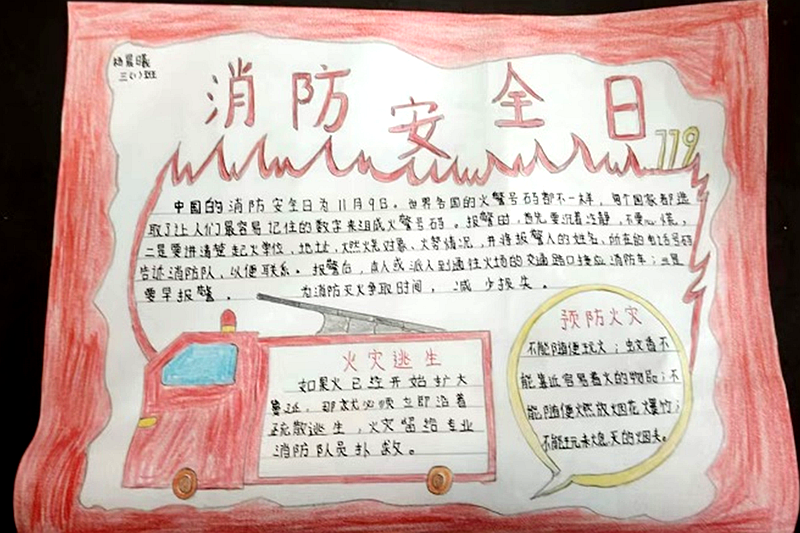 杨晨曦
三(1)班
消防安全日
119
中国的消防安全日为11月9日。世界各国的火警号码都不一样,每个国家都选
取了让人们最容易记住的数字来组成火警号码。报警时,首先要沉着冷静,不要心慌,
二是要讲清楚起火单位、地址、燃烧对象、火势情况,并将报警人的姓名、所在的电话号码
告诉消防队,以便联系。报警后,本人或派人到通往火场的交通路口接应消防车;三是
要早报警。为消防灭火争取时间,减少损失。
火灾逃生
如果火已经开始扩大
蔓延,那就必须立即沿着
疏散逃生,火灾留给专业
消防队员扑救。
预防火灾
不能随便玩火;蚊香不
能靠近容易着火的物品;不
能随便燃放烟花爆竹;
不能玩未熄灭的烟头。